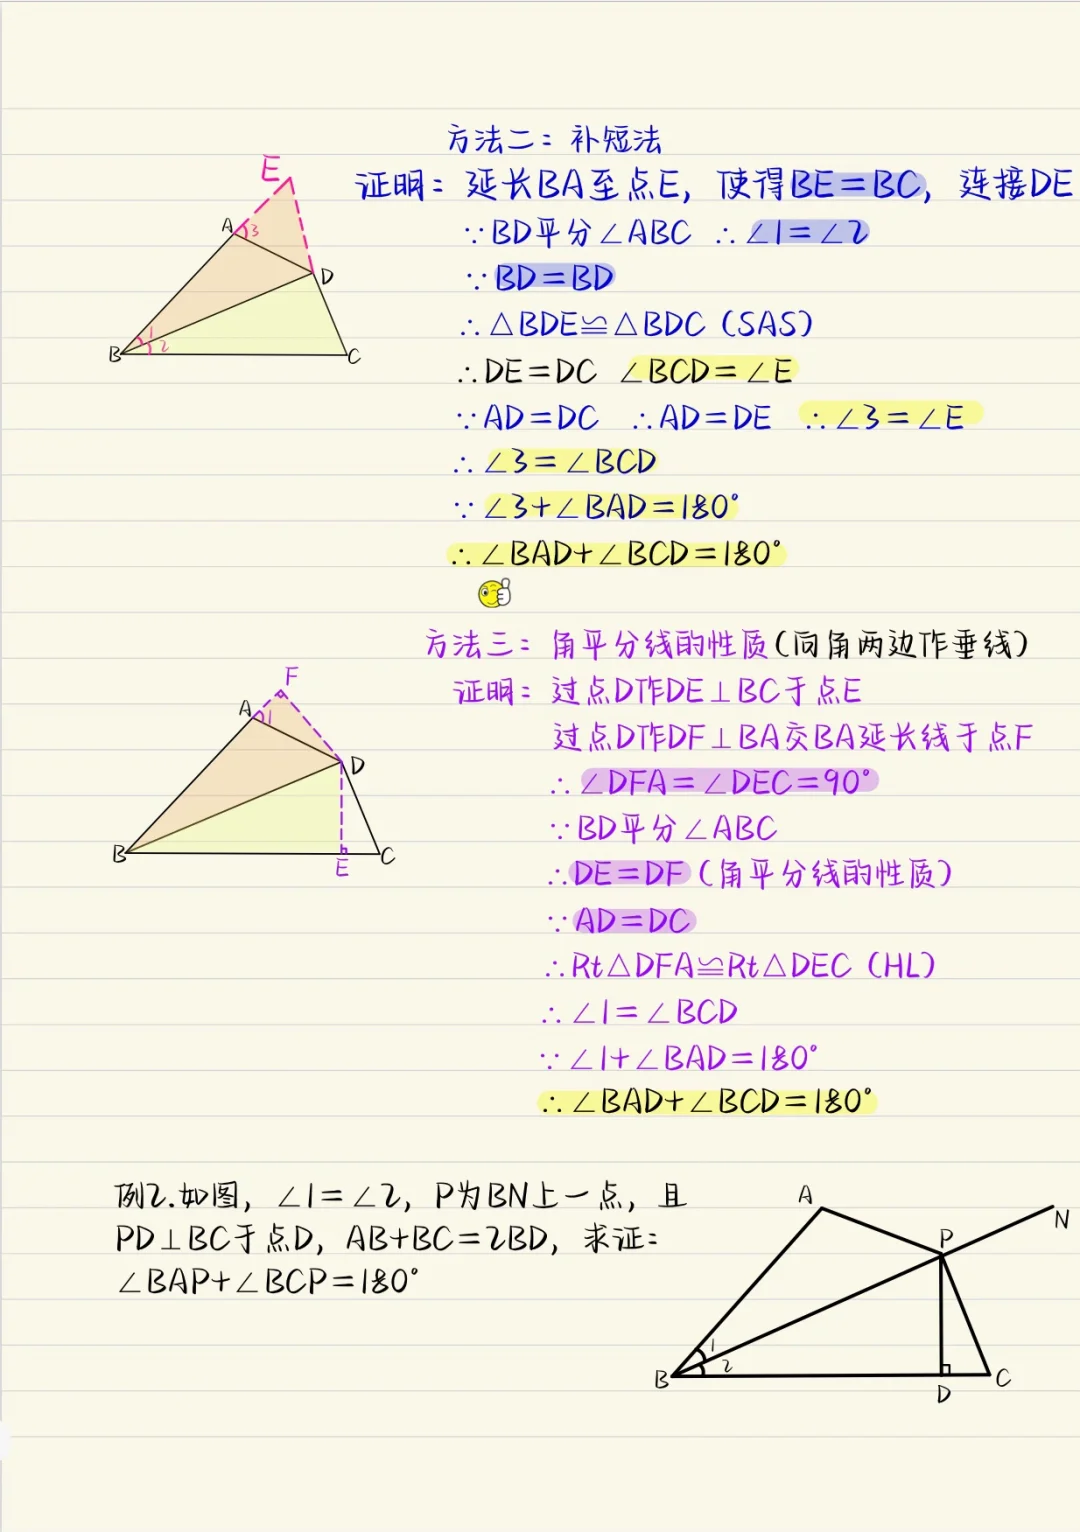 方法二：补短法
证明：延长BA至点E，使得BE=BC，连接DE
∵BD平分∠ABC ∴∠1=∠2
∵BD=BD
∴△BDE≌△BDC（SAS）
∴DE=DC ∠BCD=∠E
∵AD=DC ∴AD=DE ∴∠3=∠E
∴∠3=∠BCD
∵∠3+∠BAD=180°
∴∠BAD+∠BCD=180°
E
A
3
D
1
2
B
C
方法三：角平分线的性质（向角两边作垂线）
证明：过点D作DE⊥BC于点E
过点D作DF⊥BA交BA延长线于点F
∴∠DFA=∠DEC=90°
∵BD平分∠ABC
∴DE=DF（角平分线的性质）
∵AD=DC
∴Rt△DFA≌Rt△DEC（HL）
∴∠1=∠BCD
∵∠1+∠BAD=180°
∴∠BAD+∠BCD=180°
F
A
1
D
B
E
C
例2.如图，∠1=∠2，P为BN上一点，且
PD⊥BC于点D，AB+BC=2BD，求证：
∠BAP+∠BCP=180°
A
N
P
1
2
B
D
C